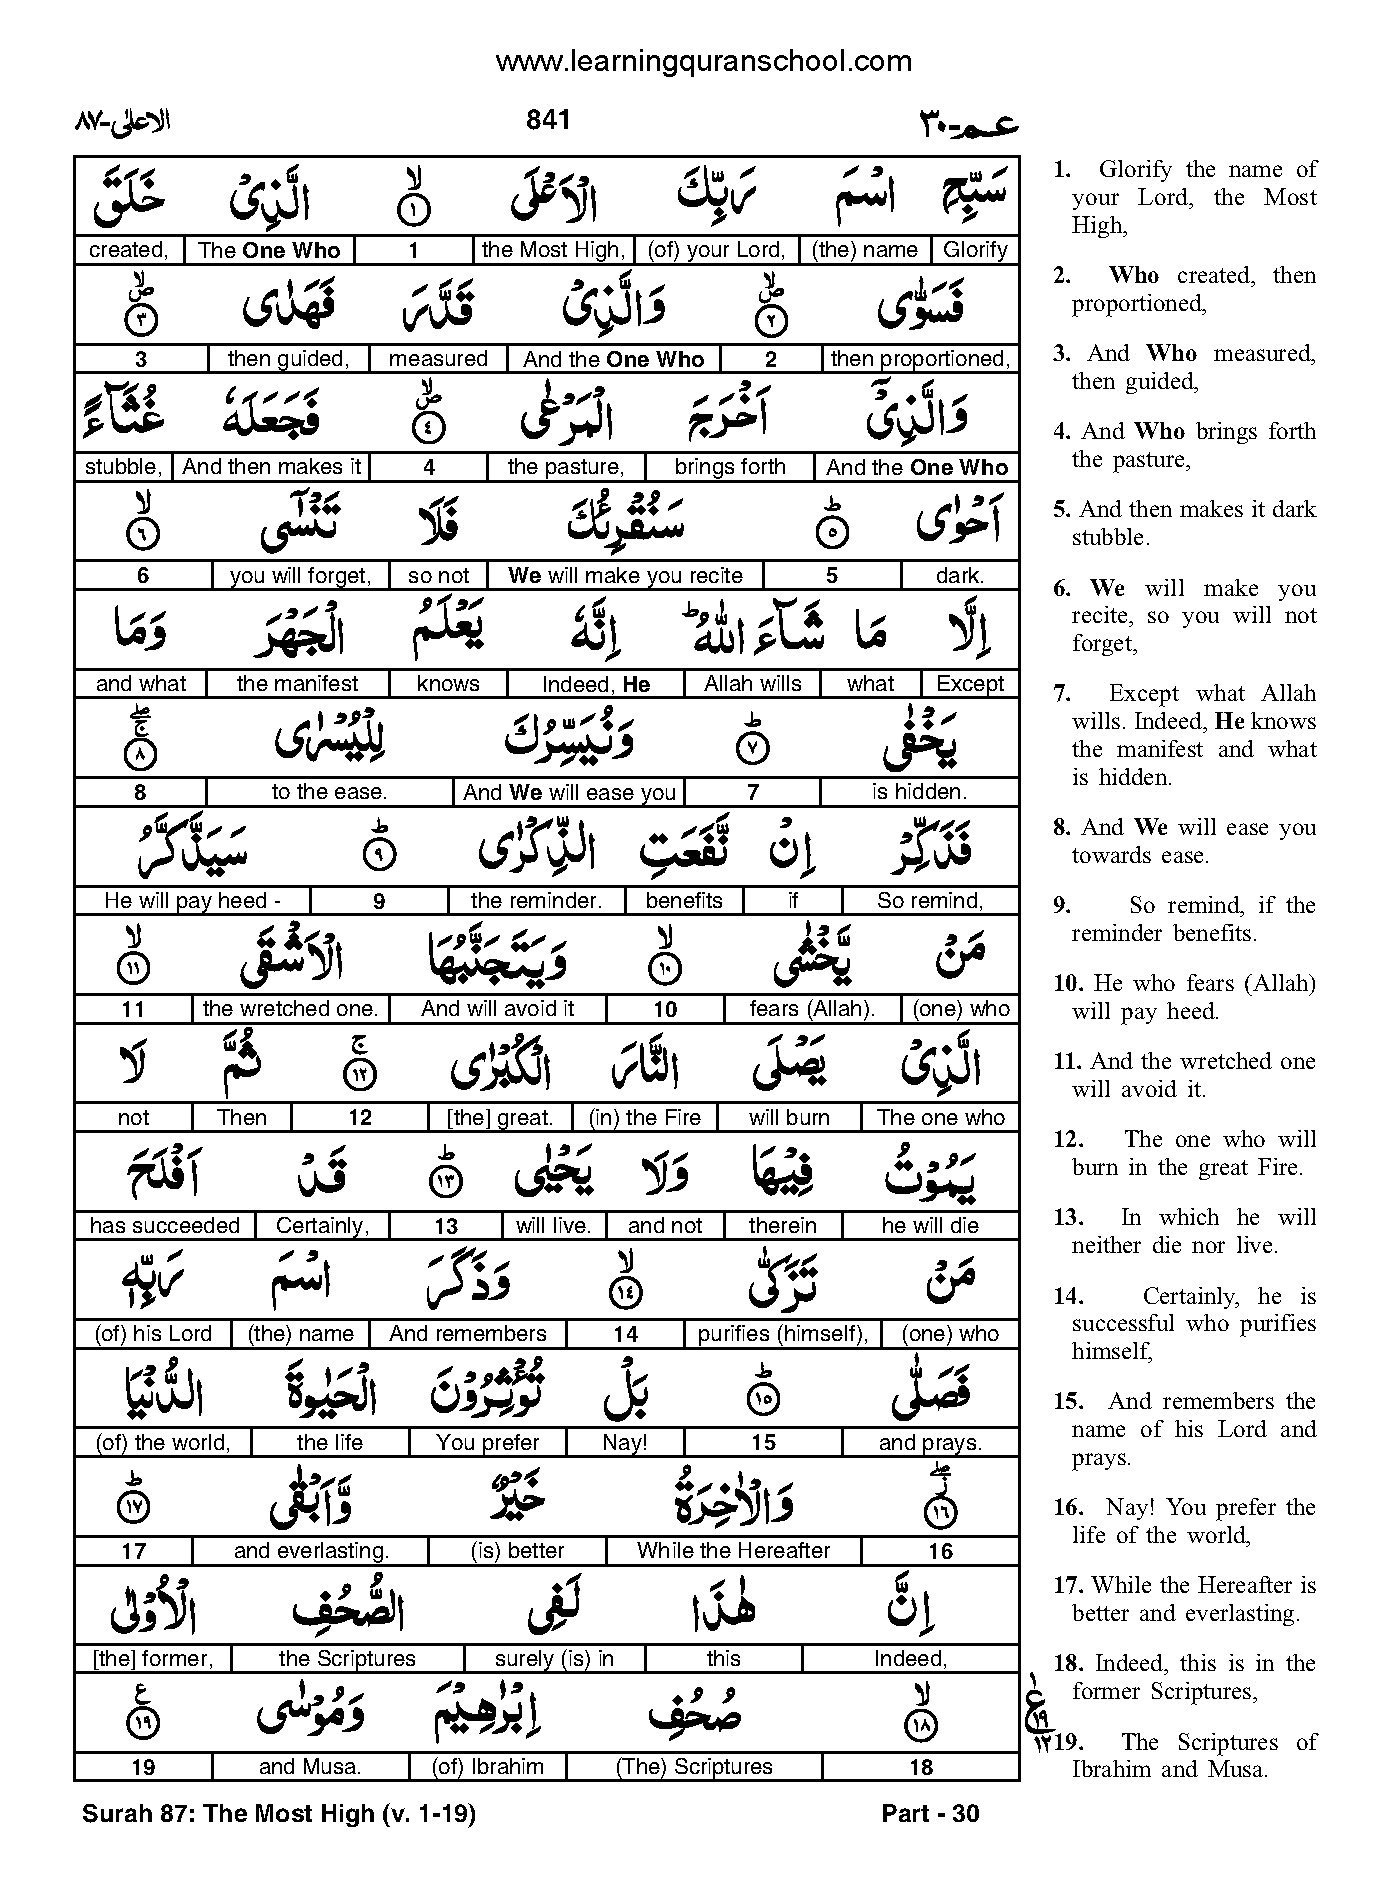 www.learningquranschool.com
الاعلى-٨٧ 841 عم-٣٠
سَبِّحِ اسْمَ رَبِّكَ الْاَعْلَى ۙ﴿۱﴾ الَّذِىْ خَلَقَ
Glorify (the) name (of) your Lord, the Most High, 1 The One Who created,
فَسَوّٰى ۪ۙ﴿۲﴾ وَالَّذِىْ قَدَّرَ فَهَدٰى ۪ۙ﴿۳﴾
then proportioned, 2 And the One Who measured then guided, 3
وَالَّذِىْۤ اَخْرَجَ الْمَرْعٰى ۪ۙ﴿۴﴾ فَجَعَلَهٗ غُثَآءً
And the One Who brings forth the pasture, 4 And then makes it stubble,
اَحْوٰى ؕ﴿۵﴾ سَنُقْرِئُكَ فَلَا تَنْسٰٓى ۙ﴿۶﴾
dark. 5 We will make you recite so not you will forget, 6
اِلَّا مَا شَآءَ اللّٰهُ ؕ اِنَّهٗ يَعْلَمُ الْجَهْرَ وَمَا
Except what Allah wills Indeed, He knows the manifest and what
يَخْفٰى ؕ﴿۷﴾ وَنُيَسِّرُكَ لِلْيُسْرٰى ۚۖ﴿۸﴾
is hidden. 7 And We will ease you to the ease. 8
فَذَكِّرْ اِنْ نَّفَعَتِ الذِّكْرٰى ؕ﴿۹﴾ سَيَذَّكَّرُ
So remind, if benefits the reminder. 9 He will pay heed -
مَنْ يَّخْشٰى ۙ﴿۱۰﴾ وَيَتَجَنَّبُهَا الْاَشْقَى ۙ﴿۱۱﴾
(one) who fears (Allah). 10 And will avoid it the wretched one. 11
الَّذِىْ يَصْلَى النَّارَ الْكُبْرٰى ۚ﴿۱۲﴾ ثُمَّ لَا
The one who will burn (in) the Fire [the] great. 12 Then not
يَمُوْتُ فِيْهَا وَلَا يَحْيٰى ؕ﴿۱۳﴾ قَدْ اَفْلَحَ
he will die therein and not will live. 13 Certainly, has succeeded
مَنْ تَزَكّٰى ۙ﴿۱۴﴾ وَذَكَرَ اسْمَ رَبِّهٖ
(one) who purifies (himself), 14 And remembers (the) name (of) his Lord
فَصَلّٰى ؕ﴿۱۵﴾ بَلْ تُؤْثِرُوْنَ الْحَيٰوةَ الدُّنْيَا
and prays. 15 Nay! You prefer the life (of) the world,
۫ۖ﴿۱۶﴾ وَالْاٰخِرَةُ خَيْرٌ وَّاَبْقٰى ؕ﴿۱۷﴾
16 While the Hereafter (is) better and everlasting. 17
اِنَّ هٰذَا لَفِى الصُّحُفِ الْاُوْلٰى
Indeed, this surely (is) in the Scriptures [the] former,
ۙ﴿۱۸﴾ صُحُفِ اِبْرٰهِيْمَ وَمُوْسٰى ﴿۱۹﴾ ع
18 (The) Scriptures (of) Ibrahim and Musa. 19
1. Glorify the name of
your Lord, the Most
High,
2. Who created, then
proportioned,
3. And Who measured,
then guided,
4. And Who brings forth
the pasture,
5. And then makes it dark
stubble.
6. We will make you
recite, so you will not
forget,
7. Except what Allah
wills. Indeed, He knows
the manifest and what
is hidden.
8. And We will ease you
towards ease.
9. So remind, if the
reminder benefits.
10. He who fears (Allah)
will pay heed.
11. And the wretched one
will avoid it.
12. The one who will
burn in the great Fire.
13. In which he will
neither die nor live.
14. Certainly, he is
successful who purifies
himself,
15. And remembers the
name of his Lord and
prays.
16. Nay! You prefer the
life of the world,
17. While the Hereafter is
better and everlasting.
18. Indeed, this is in the
former Scriptures,
١
ع
١٩
١٢
19. The Scriptures of
Ibrahim and Musa.
Surah 87: The Most High (v. 1-19) Part - 30